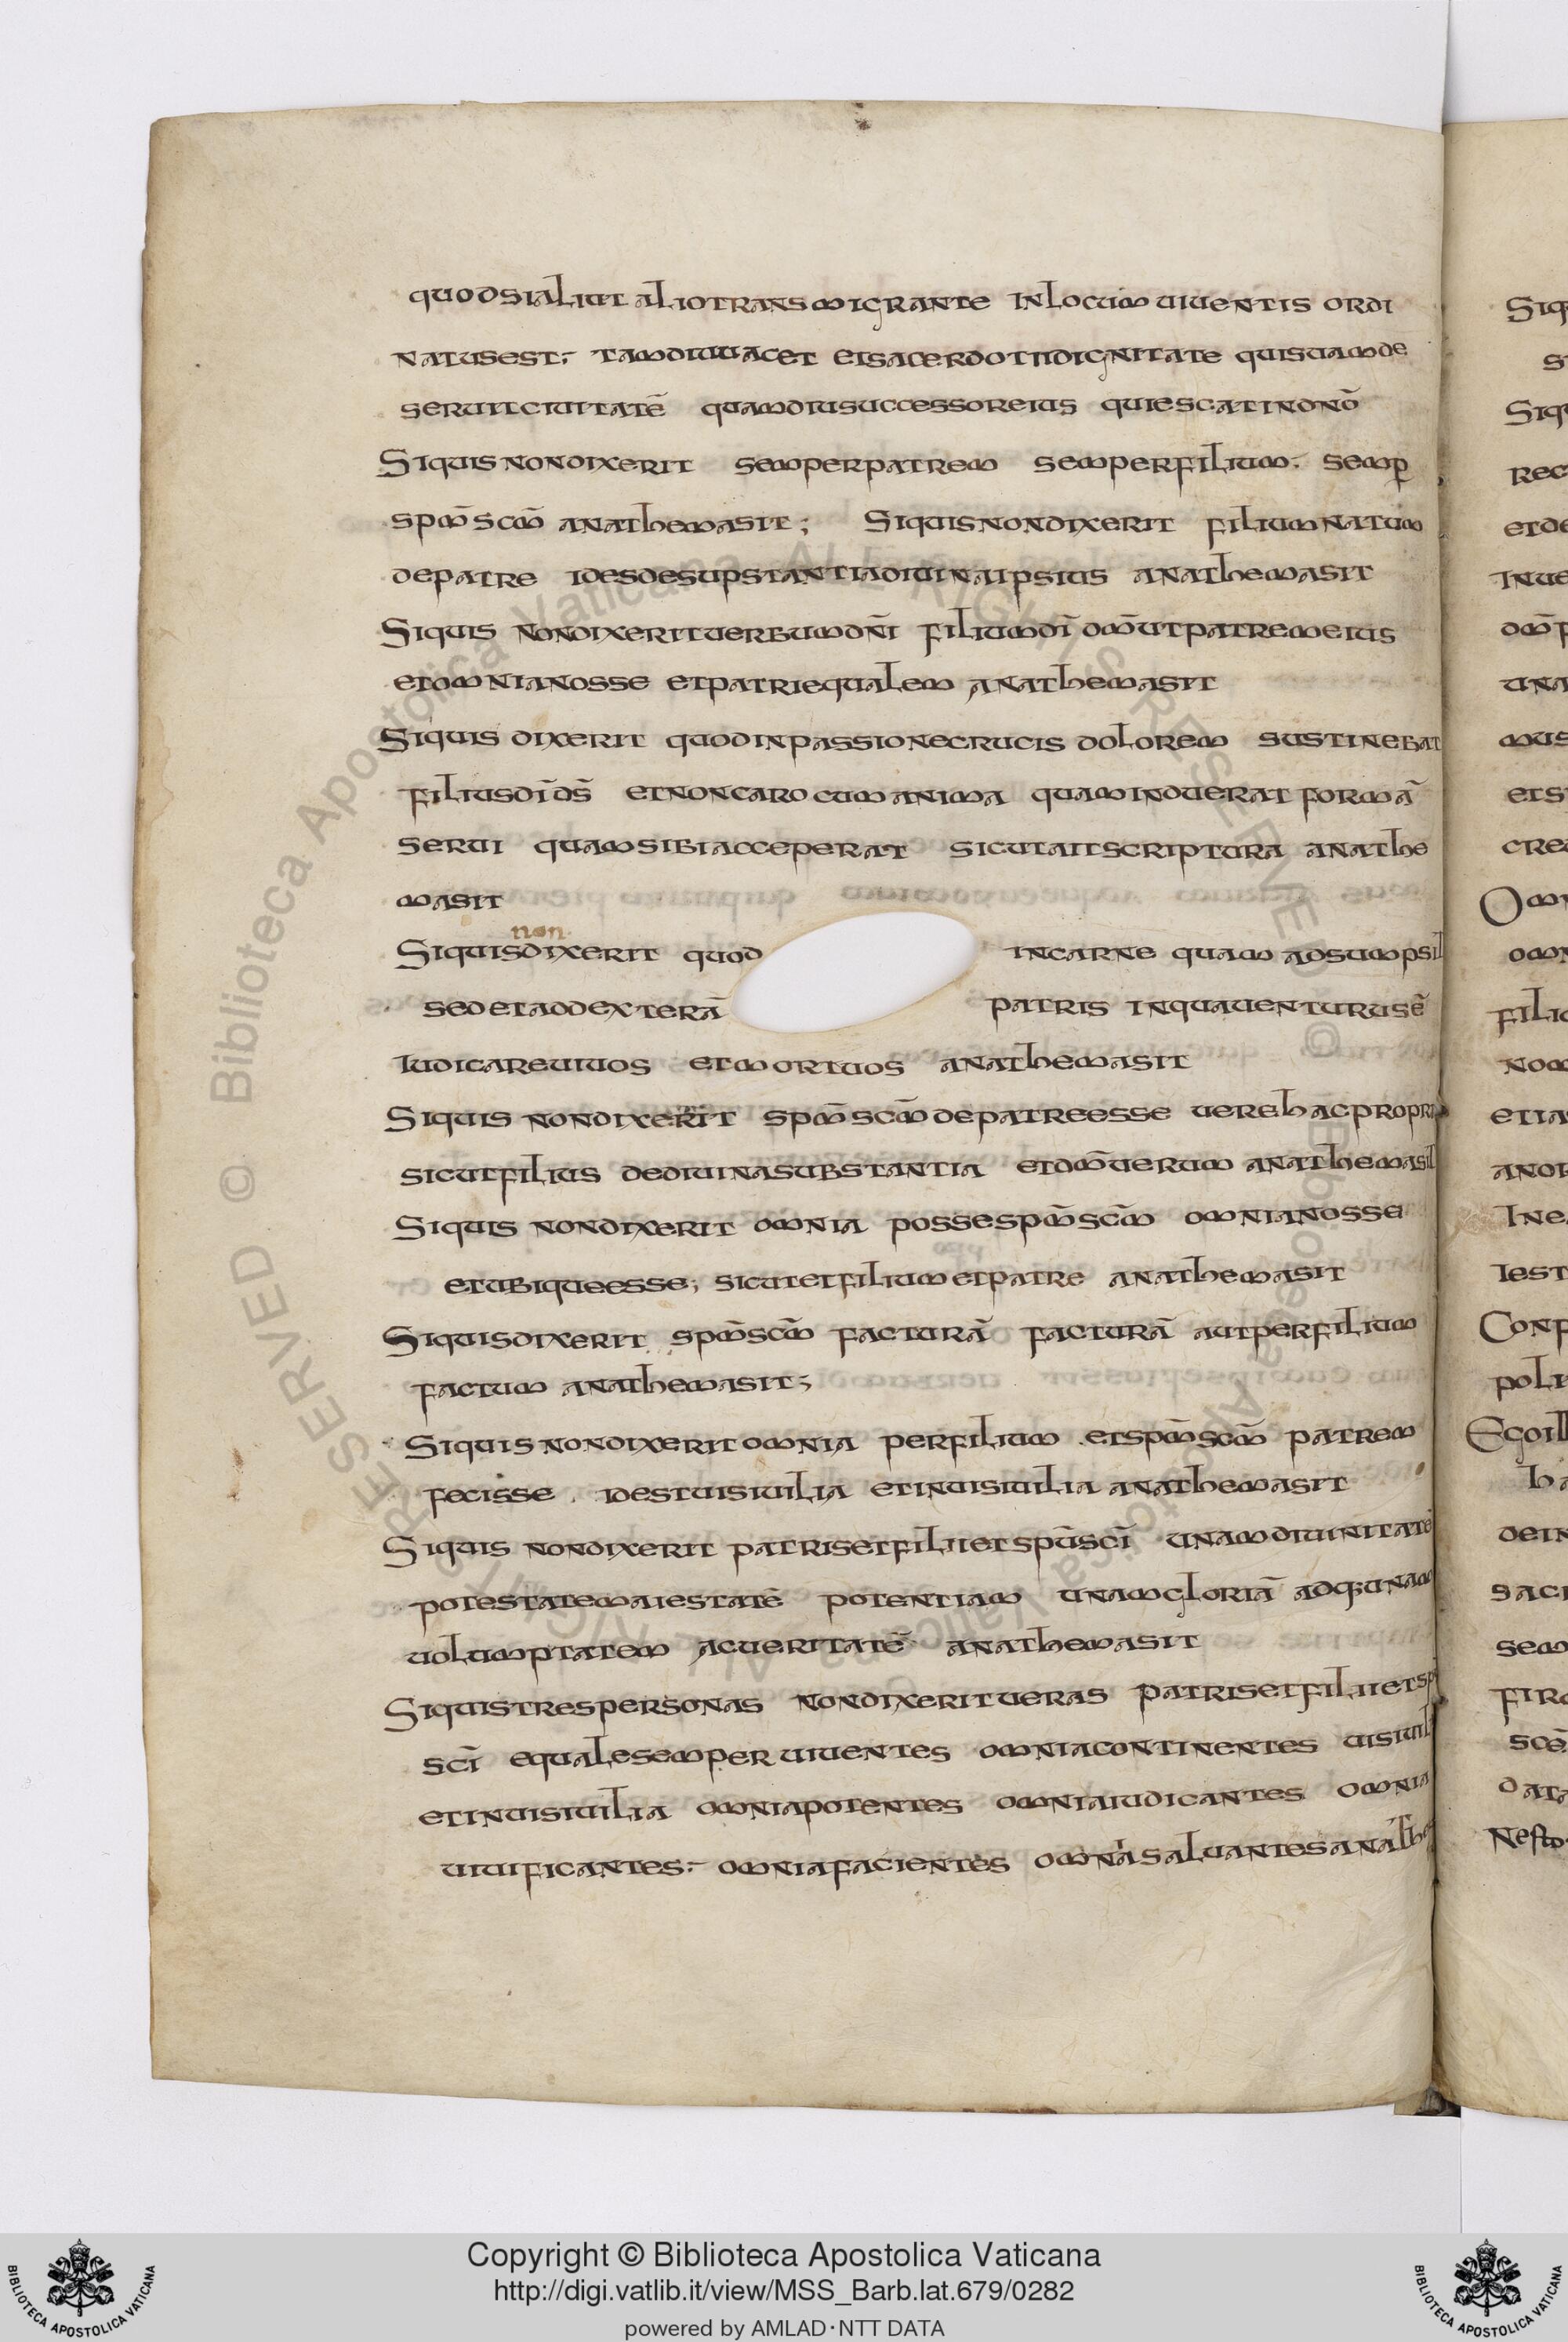 quodsialiut aliotransmigrante inlocum uiuentis ordi
natusest; tamdiuuacet eisacerdotiidignitate quisuamde
seruitciuitatē quamdiusuccessoreius quiescatindnō
Siquisnondixerit semperpatrem semperfilium. semp̱
spm̄scm̄ anathemasit; Siquisnondixerit filiumnatum
depatre idesdesupstantiadiuinaipsius anathemasit
Siquis nondixerituerbumdnī filiumdī dm̄utpatremeius
etomnianosse etpatriequalem anathemasit
Siquis dixerit quodinpassionecrucis dolorem sustinebat
filiusdīds̄ etnoncarocumanima quaminduerat formā
serui quamsibiacceperat sicutaitscriptura anathe
masit
non
Siquisdixerit quod incarne quam adsumpsit
sedetaddexterā patris inquauenturusē
iudicareuiuos etmortuos anathemasit
Siquis nondixerit spm̄scm̄depatreesse uerehacpropri
sicutfilius dediuinasubstantia etdm̄uerum anathemasit
Siquis nondixerit omnia possespm̄scm̄ omnianosse
etubiqueesse; sicutetfiliumetpatre anathemasit
Siquisdixerit spm̄scm̄ facturā facturā autperfilium
factum anathemasit;
Siquisnondixeritomnia perfilium etspm̄scm̄ patrem
fecisse idestuisiuilia etinuisiuilia anathemasit
Siquis nondixerit patrisetfiliietspūscī unamdiuinitatē
potestatemaiestatē potentiam unamgloriā adq;unam
uolumptatem acueritatē anathemasit
Siquistrespersonas nondixeritueras patrisetfiliietsp
scī equalesemper uiuentes omniacontinentes uisiuil
etinuisiuilia omniapotentes omniaiudicantes omnia
uiuificantes; omniafacientes omnīasaluantesanathe
Copyright © Biblioteca Apostolica Vaticana
http://digi.vatlib.it/view/MSS_Barb.lat.679/0282
powered by AMLAD·NTT DATA